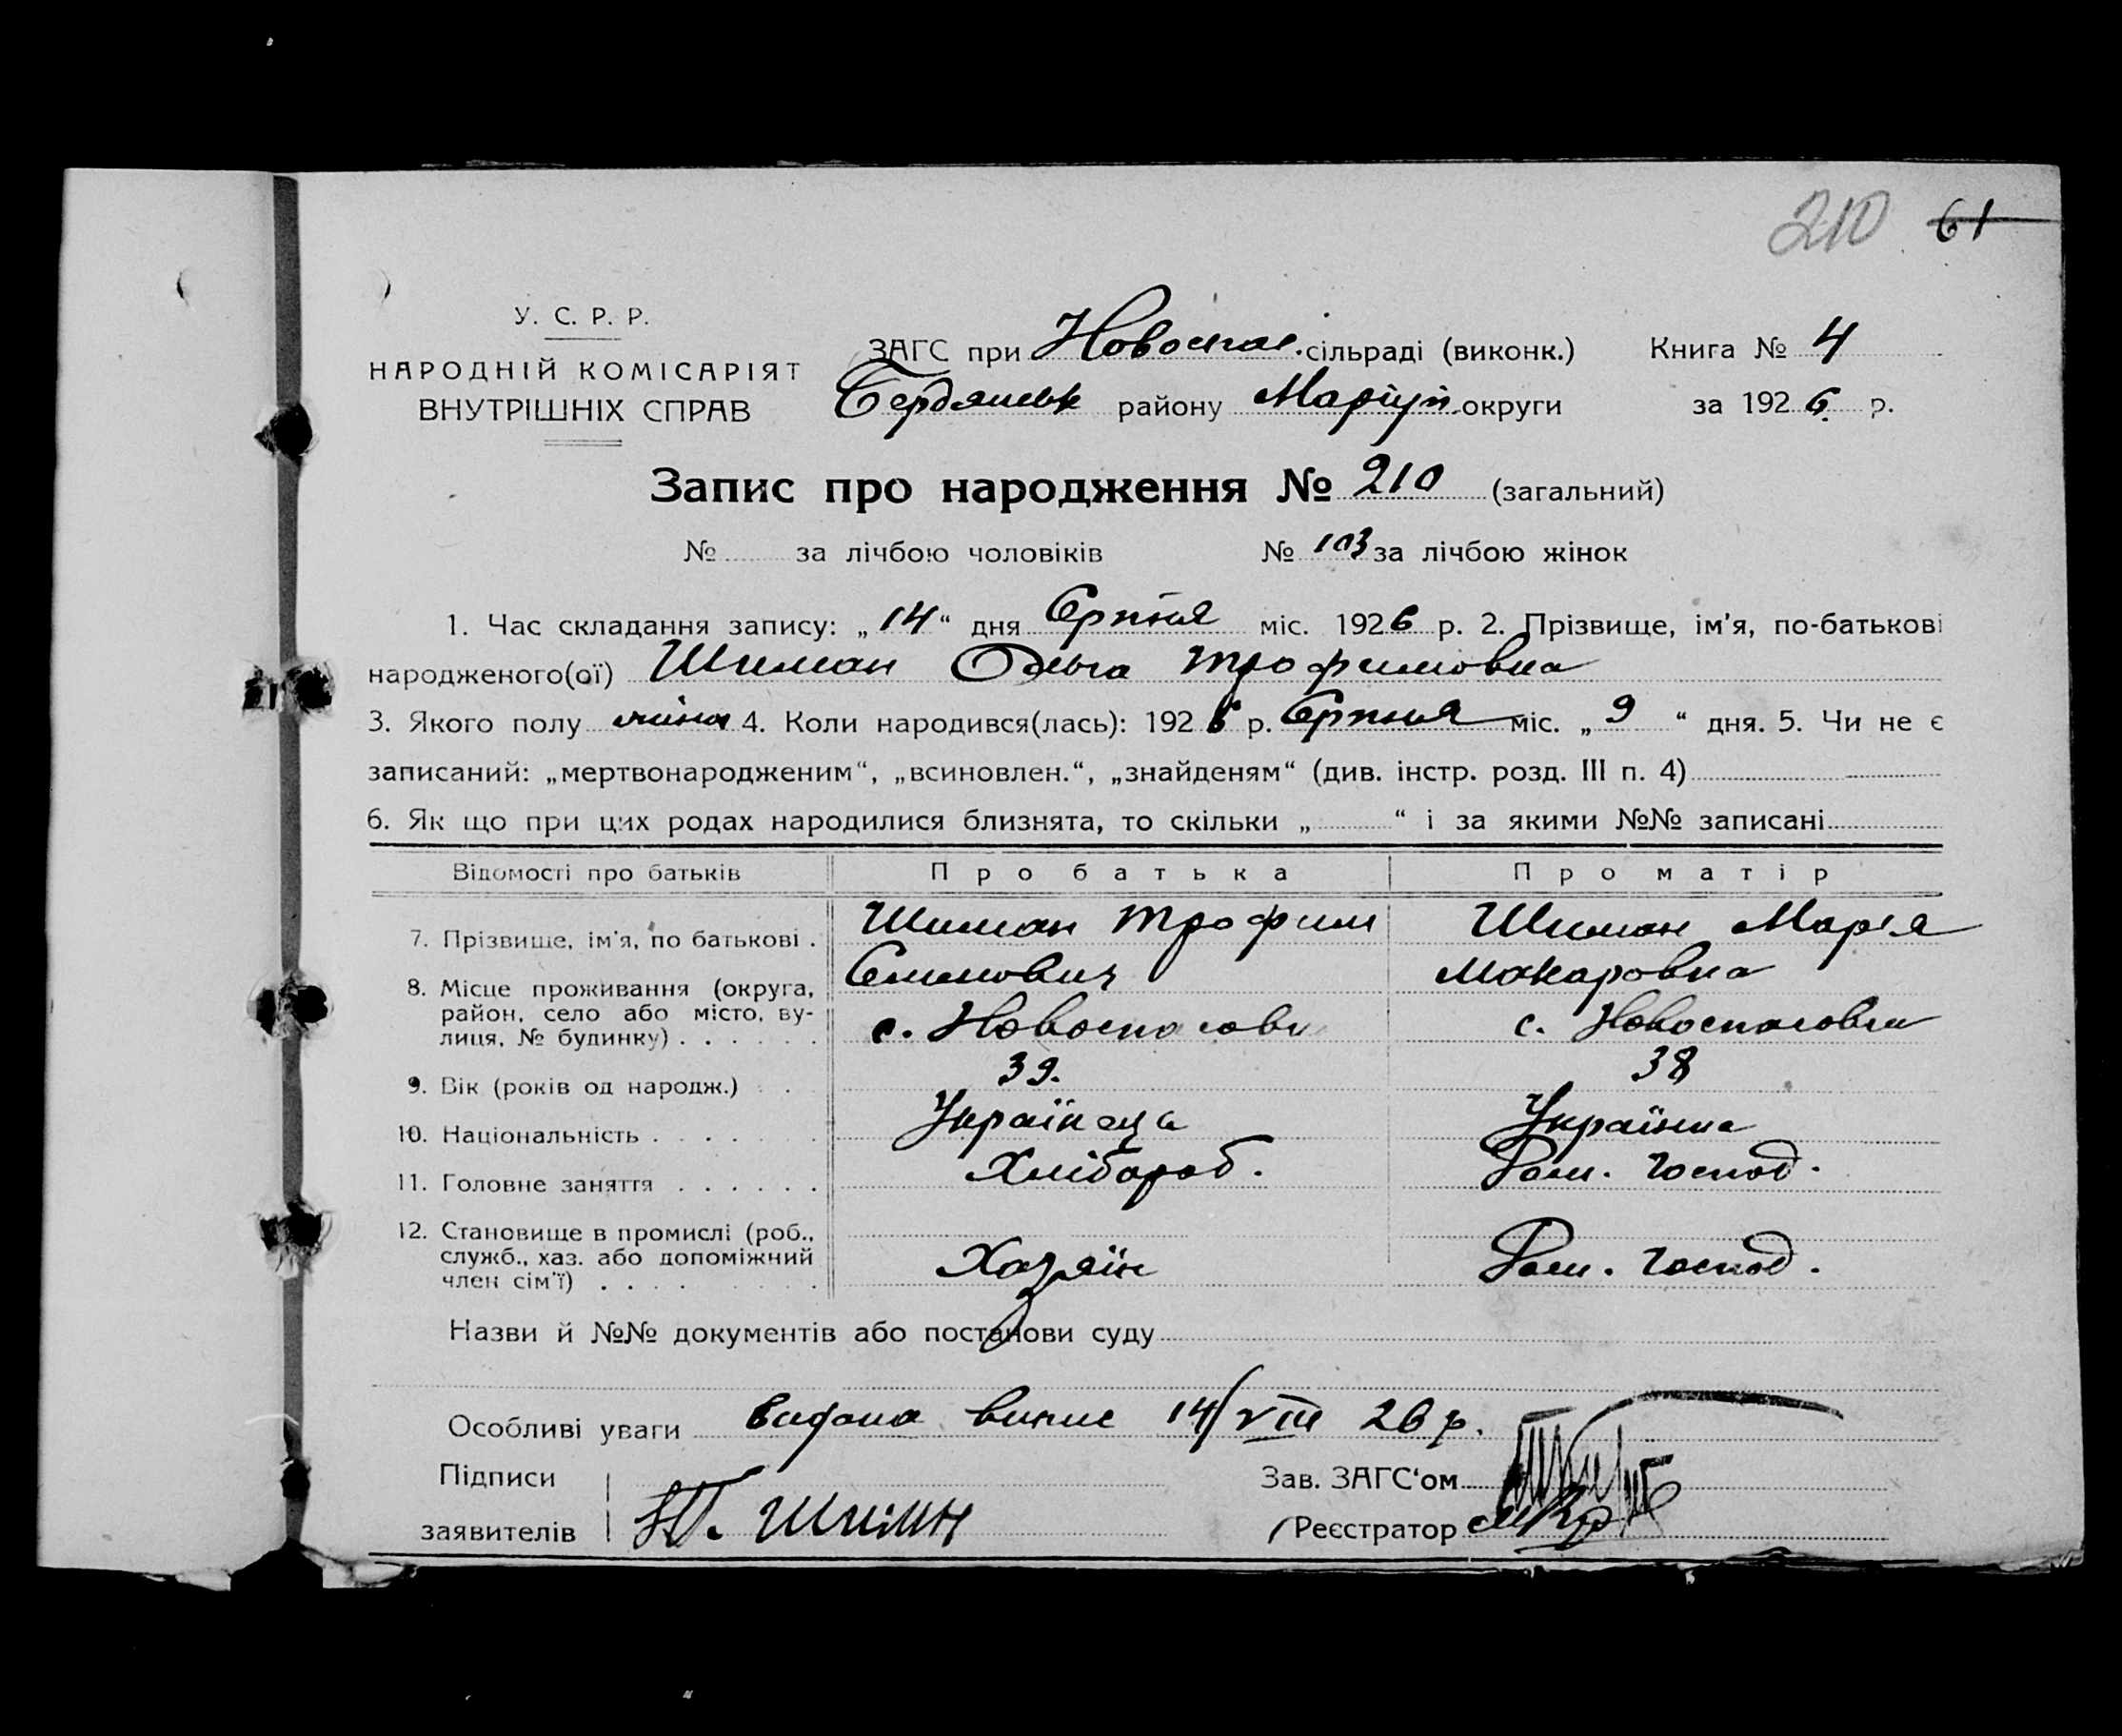 210 61
У. С. Р. Р.
НАРОДНІЙ КОМІСАРІЯТ
ВНУТРІШНІХ СПРАВ
ЗАГС при Новоспас. сільраді (виконк.) Книга № 4
Бердянськ району Маріуп. округи за 1926 р.
Запис про народження № 210 (загальний)
№ за лічбою чоловіків № 103 за лічбою жінок
1. Час складання запису: „14“ дня Серпня міс. 1926 р. 2. Прізвище, ім'я, по-батькові
народженого(ої) Шиман Ольга Трофимовна
3. Якого полу 4. Коли народився(лась): 1926 р. Серпня міс. „9“ дня. 5. Чи не є
записаний: „мертвонародженим“, „всиновлен.“, „знайденям“ (див. інстр. розд. III п. 4)
6. Як що при цих родах народилися близнята, то скільки „ “ і за якими №№ записані
Відомості про батьків Про батька Про матір
7. Прізвище, ім'я, по батькові . Шиман Трофим Шиман Марія
Семенович Макаровна
8. Місце проживання (округа,
район, село або місто, ву-
лиця, № будинку) . . . . . . с. Новоспасовка с. Новоспасовка
9. Вік (років од народж.) . . 39. 38
10. Національність . . . . . . Українець Українка
11. Головне заняття . . . . . . Хлібороб. Дом. господ.
12. Становище в промислі (роб.,
служб., хаз. або допоміжний
член сім'ї) . . . . . . . . Хазяїн Дом. господ.
Назви й №№ документів або постанови суду
Особливі уваги видана випис 14/VIII 26 р.
Підписи Зав. ЗАГС'ом
заявителів Т. Шиман Реєстратор